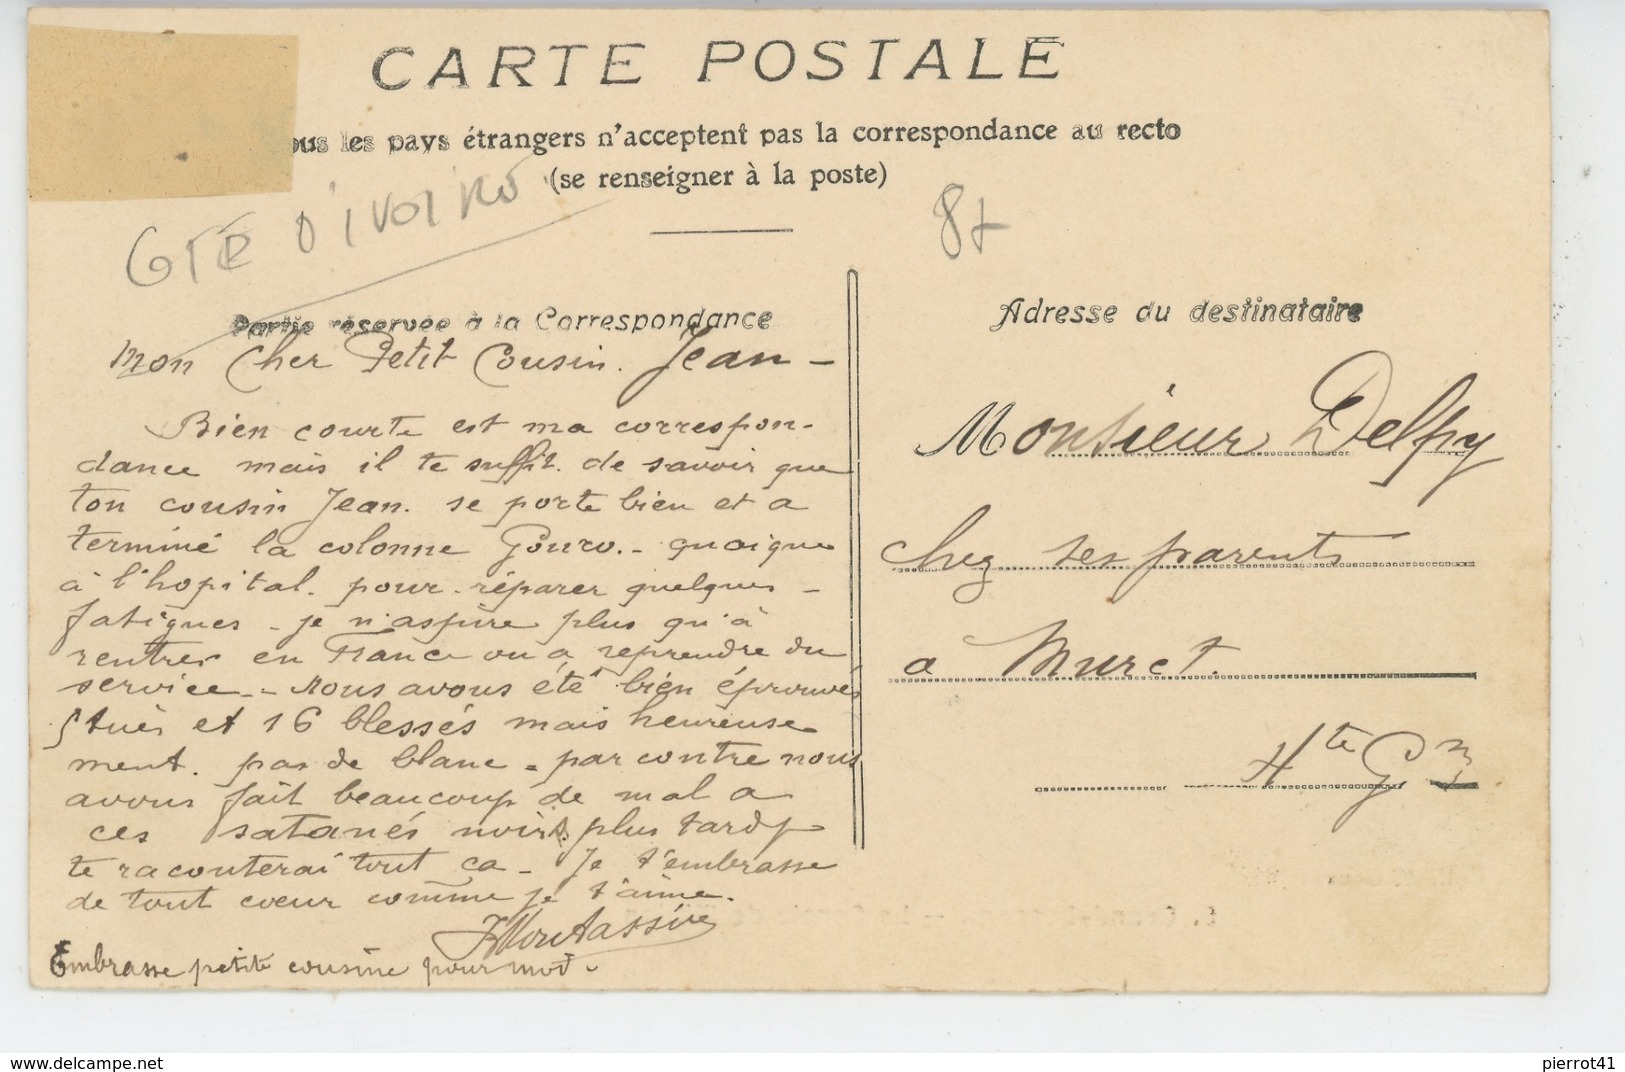 CARTE POSTALE
ous les pays étrangers n'acceptent pas la correspondance au recto
(se renseigner à la poste)
CTE D'IVOIRE
8f
Partie réservée à la Correspondance
Mon Cher Petit Cousin. Jean -
Bien courte est ma correspon-
dance mais il te suffit. de savoir que
ton cousin Jean. se porte bien et a
terminé la colonne Gouro. - quoique
à l'hopital. pour réparer quelques -
fatigues - je n'aspire plus qu'à
rentrer en France ou a reprendre du
service - Nous avons été bien éprouvés
tués et 16 blessés mais heureuse
ment. pas de blanc - par contre nous
avons fait beaucoup de mal a
ces satanés noirs. plus tard je
te raconterai tout ça - Je t'embrasse
de tout coeur comme je t'aime.
JMontassire
Embrasse petite cousine pour moi -
Adresse du destinataire
Monsieur Delpy
chez ses parents
a Muret.
Hte G
www.delcampe.net
pierrot41